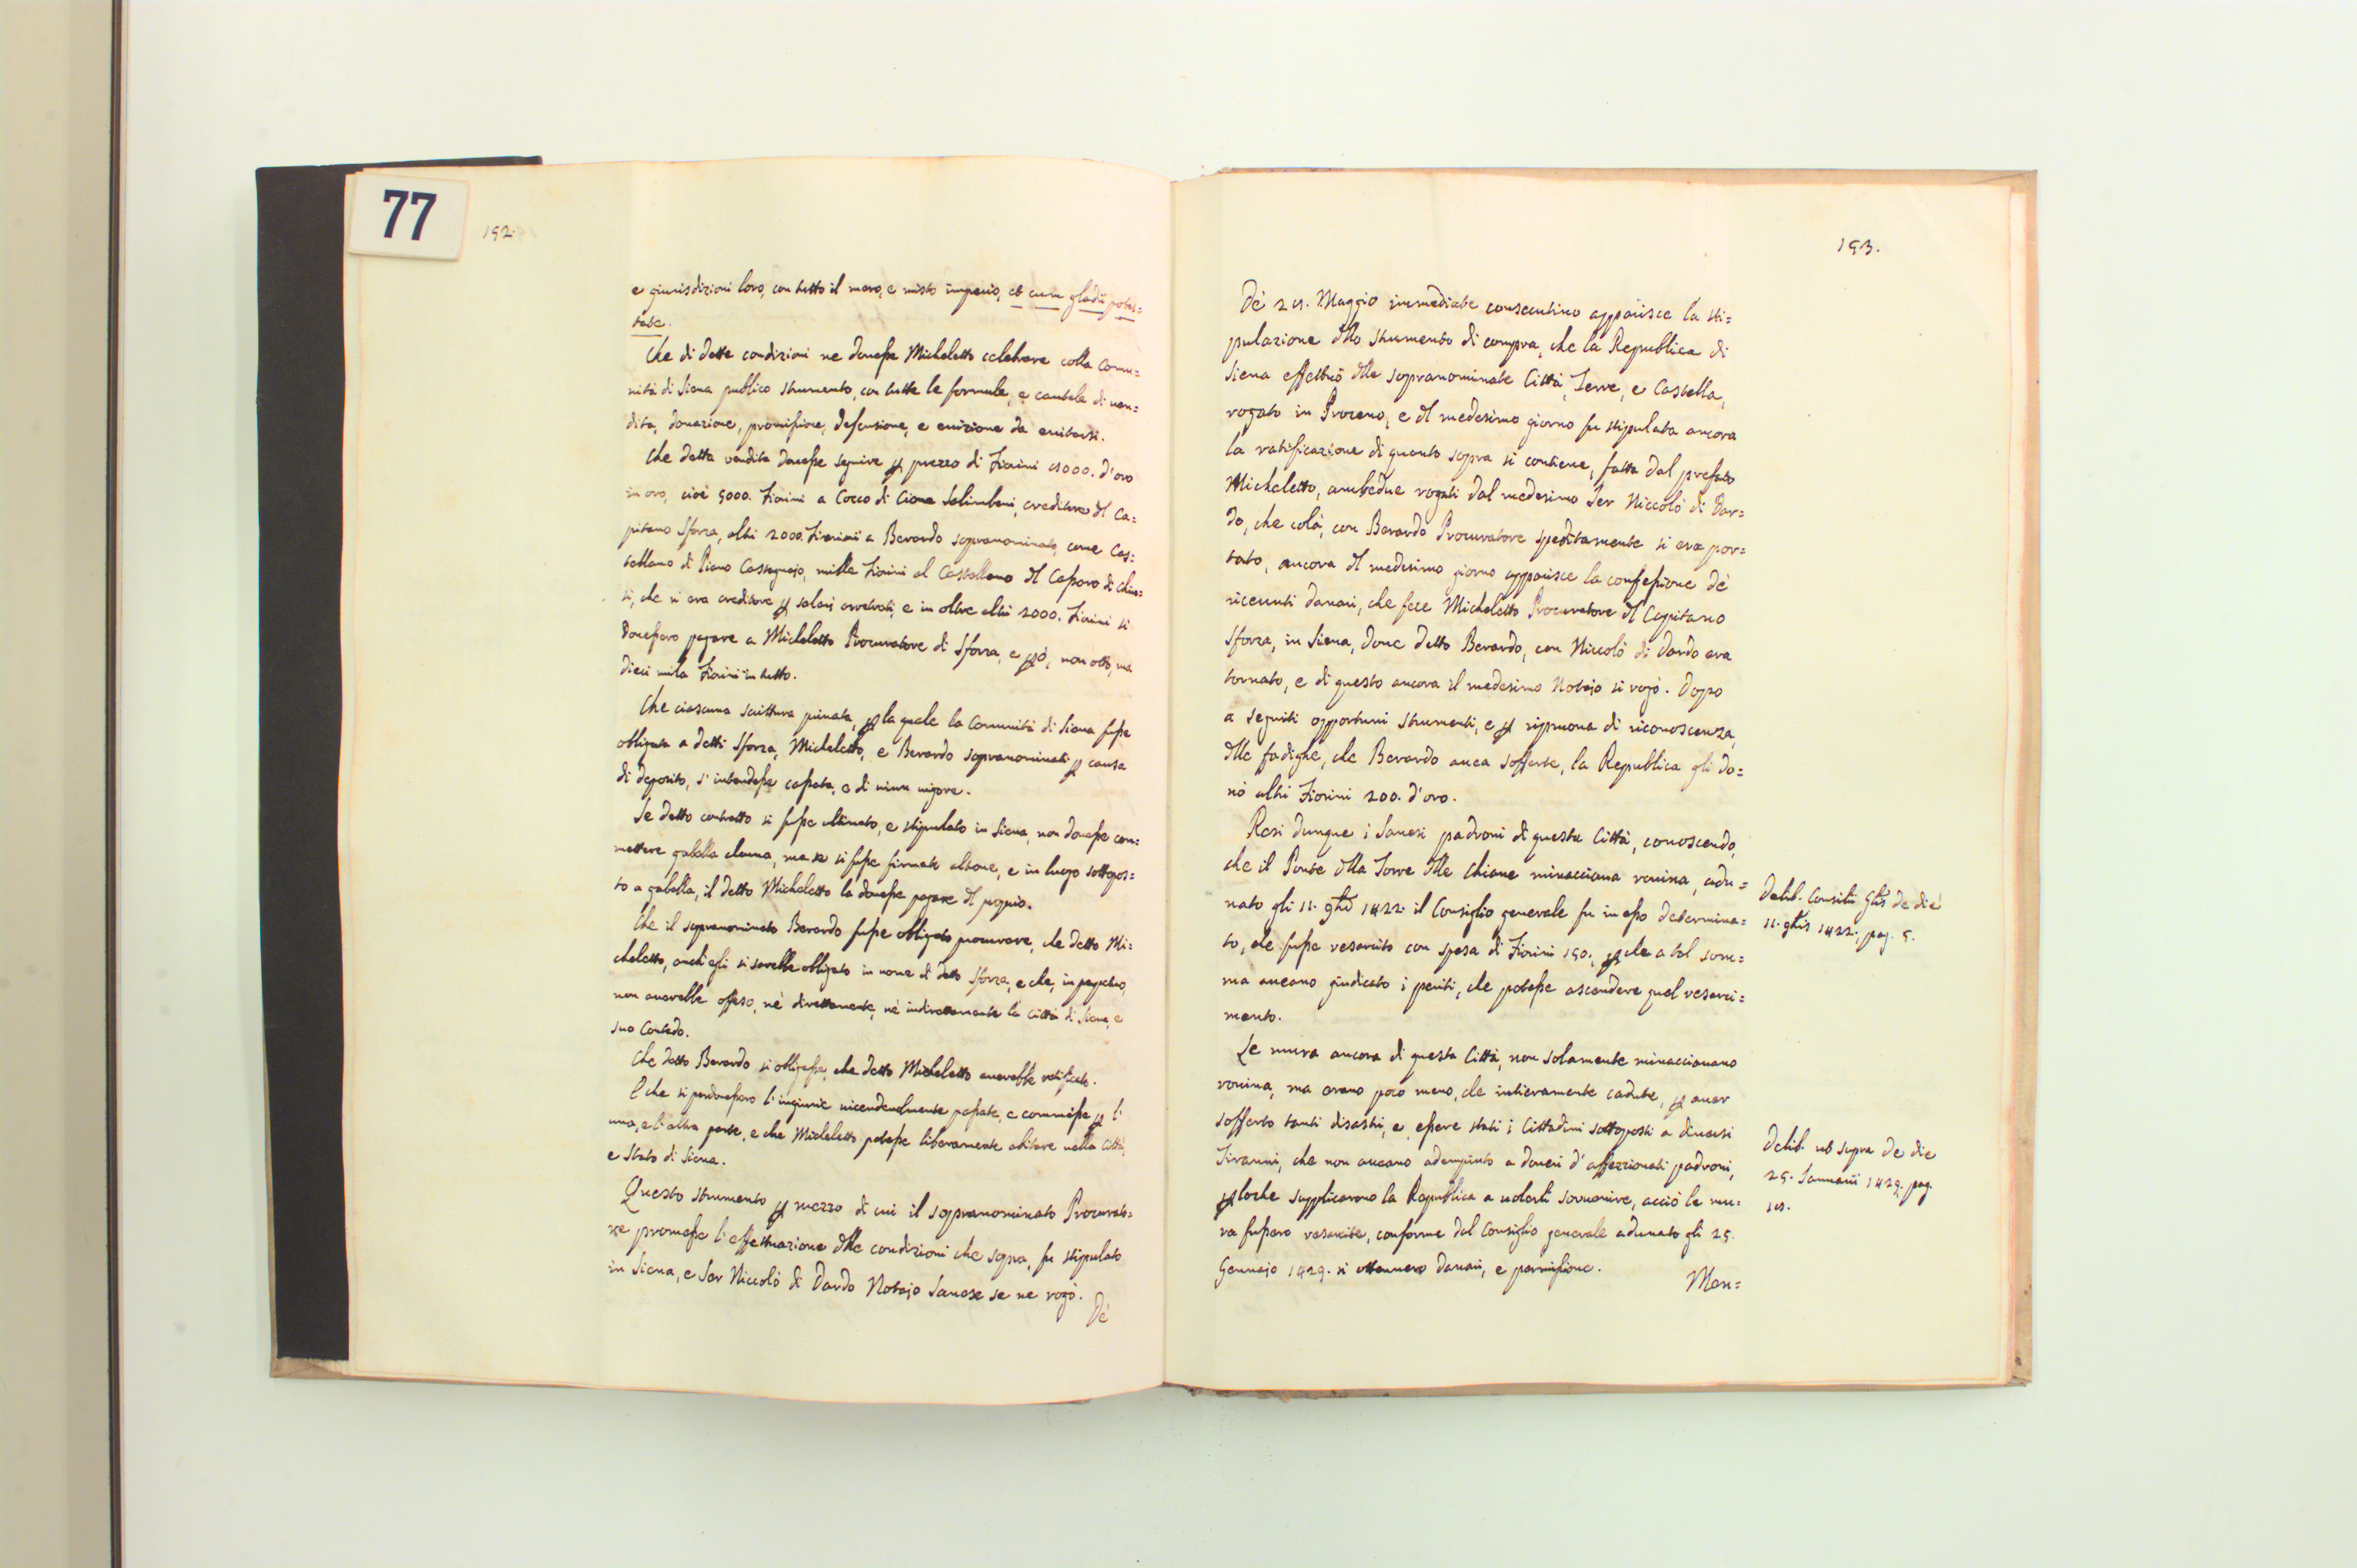 77
152.
e giurisdizioni loro, con tutto il mero, e misto imperio, et cum gladii potes=
tate.
Che di dette condizioni ne douesse Micheletto celebrare colla Comu=
nità di Siena publico strumento, con tutte le formule, e cautele di uen=
dita, donazione, promissione, defensione, e euizione da euitarsi.
Che detta vendita douesse seguire p prezzo di Fiorini 8000. d'oro
in oro, cioè 5000. Fiorini a Cocco di Cione Salimbeni, creditore dl Ca=
pitano Sforza, altri 2000. Fiorini a Berardo sopranominato, come Cas=
tellano di Piano Castagnajo, mille Fiorini al Castellano dl Cassaro di Chiu=
si, che si era creditore p salarj arretrati, e in oltre altri 2000. Fiorini si
douessero pagare a Micheletto Procuratore di Sforza, e pò, non otto, ma
dieci mila Fiorini in tutto.
Che ciascuna scrittura priuata, p la quale la Comunità di Siena fusse
obligata a detti Sforza, Micheletto, e Berardo sopranominati p causa
di deposito, s'intendesse cassata, e di niun uigore.
Se detto contratto si fusse ultimato, e stipulato in Siena, non douesse com=
mettere gabella alcuna, ma se si fusse firmato altroue, e in luogo sottopos=
to a gabella, il detto Micheletto la douesse pagare dl proprio.
Che il sopranominato Berardo fusse obligato procurare, che detto Mi=
cheletto, anch'egli si sarebbe obligato in nome di detto Sforza, e che, in perpetuo,
non auerebbe offeso, nè direttamente, nè indirettamente la Città di Siena, e
suo Contado.
Che detto Berardo si obligasse, che detto Micheletto auerebbe ratificato.
E che si perdonassero l'ingiurie uicendeuolmente passate, e commesse p l'
una, e l'altra parte, e che Micheletto potesse liberamente abitare nella Città,
e Stato di Siena.
Questo strumento p mezzo di cui il sopranominato Procurato=
re promesse l'effettuazione dlle condizioni che sopra, fu stipulato
in Siena, e Ser Niccolò di Dardo Notajo Sanese se ne rogò.
Dè
153.
Dè 28. Maggio immediate consecutiuo apparisce la sti=
pulazione dllo strumento di compra, che la Republica di
Siena effettuò dlle sopranominate Città, Terre, e Castella,
rogato in Proceno, e dl medesimo giorno fu stipulata ancora
la ratificazione di quanto sopra si contiene, fatta dal prefato
Micheletto, ambedue rogati dal medesimo Ser Niccolò di Dar=
do, che colà, con Berardo Procuratore speditamente si era por=
tato, ancora dl medesimo giorno apparisce la confessione dè
riceuuti danari, che fece Micheletto Procuratore dl Capitano
Sforza, in Siena, doue detto Berardo, con Niccolò di Dardo era
tornato, e di questo ancora il medesimo Notajo si rogò. Dopo
a seguiti opportuni strumenti, e p ripruoua di riconoscenza,
dlle fadighe, che Berardo auea sofferte, la Republica gli do=
nò altri Fiorini 200. d'oro.
Resi dunque i Sanesi padroni di questa Città, conoscendo,
che il Ponte dlla Torre dlle Chiane minacciaua rouina, adu=
nato gli 11. 9bre 1422. il Consiglio generale fu in esso determina=
to, che fusse resarcito con spesa di Fiorini 150., p che a tal som=
ma aueano giudicato i periti, che potesse ascendere quel resarci=
mento.
Le mura ancora di questa Città, non solamente minacciauano
rouina, ma erano poco meno, che intieramente cadute, p auer
sofferto tanti disastri, e essere stati i Cittadini sottoposti a diuersi
Tiranni, che non aueano adempiuto a doueri d'affezzionati padroni,
p loche supplicarono la Republica a uolerli souuenire, acciò le mu=
ra fussero resarcite, conforme dal Consiglio generale adunato gli 25.
Gennajo 1429. si ottennero danari, e permissione.
Men=
Delib. Consilii Glis de die
11. 9bris 1422., pag. 5.
Delib. ub supra de die
25. Ianuarii 1429. pag.
18.